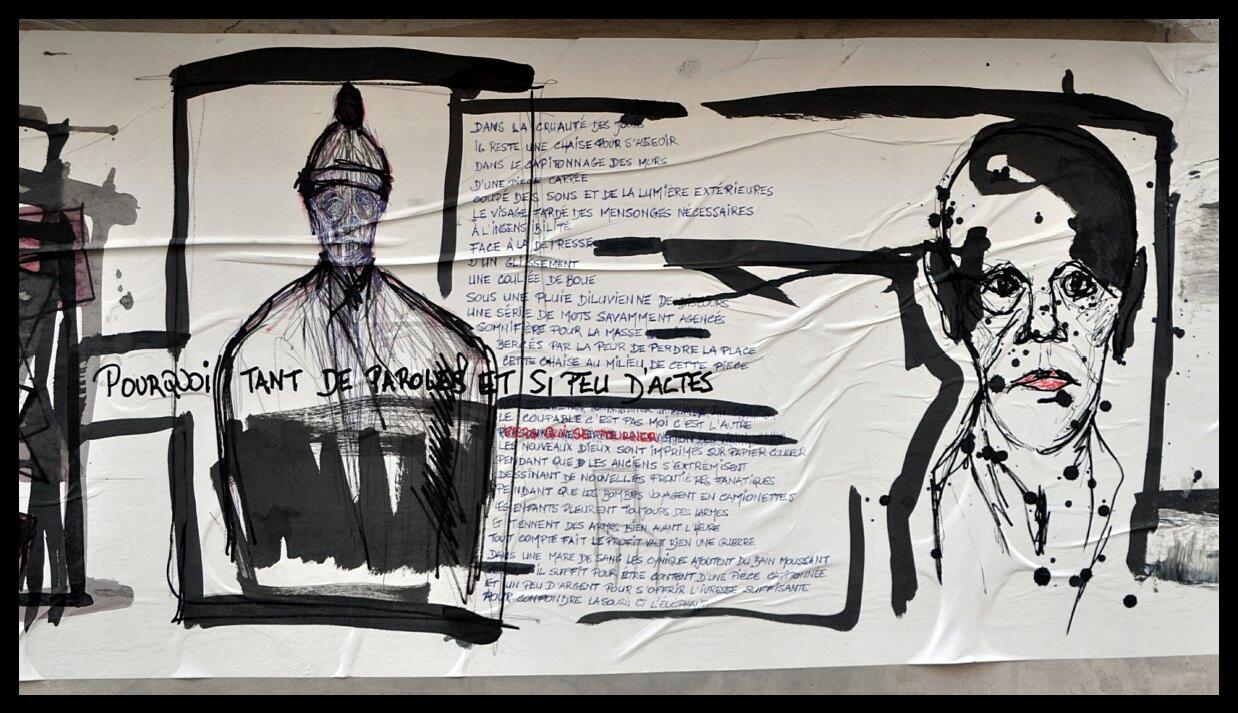 DANS LA CRUAUTÉ DES
IL RESTE UNE CHAISE POUR S'ASSEOIR
DANS LE CAPITONNAGE DES MURS
D'UNE PIÈCE CARRÉE
COUPÉ DES SONS ET DE LA LUMIÈRE EXTÉRIEURES
LE VISAGE FARDÉ DES MENSONGES NÉCESSAIRES
À L'INSENSIBILITÉ
FACE À LA DÉTRESSE
D'UN GLISSEMENT
UNE COULÉE DE BOUE
SOUS UNE PLUIE DILUVIENNE DE DISCOURS
UNE SÉRIE DE MOTS SAVAMMENT AGENCÉS
SOMNIFÈRE POUR LA MASSE
BERCÉS PAR LA PEUR DE PERDRE LA PLACE
CETTE CHAISE AU MILIEU DE CETTE PIÈCE
POURQUOI TANT DE PAROLES ET SI PEU D'ACTES
LE COUPABLE C'EST PAS MOI C'EST L'AUTRE
LES NOUVEAUX DIEUX SONT IMPRIMÉS SUR PAPIER COULEUR
PENDANT QUE LES ANCIENS S'EXTRÉMISENT
DESSINANT DE NOUVELLES FRONTIÈRES FANATIQUES
PENDANT QUE LES BOMBES VOYAGENT EN CAMIONNETTES
LES ENFANTS PLEURENT TOUJOURS DES LARMES
ET TIENNENT DES ARMES BIEN AVANT L'HEURE
TOUT COMPTE FAIT LE PROFIT VAUT BIEN UNE GUERRE
DANS UNE MARE DE SANG LES CYNIQUE AJOUTENT DU BAIN MOUSSANT
IL SUFFIT POUR ÊTRE CONTENT D'UNE PIÈCE CAPITONNÉE
ET UN PEU D'ARGENT POUR S'OFFRIR L'IVRESSE SUFFISANTE
POUR CONFONDRE LA SOURIS ET L'ÉLÉPHANT